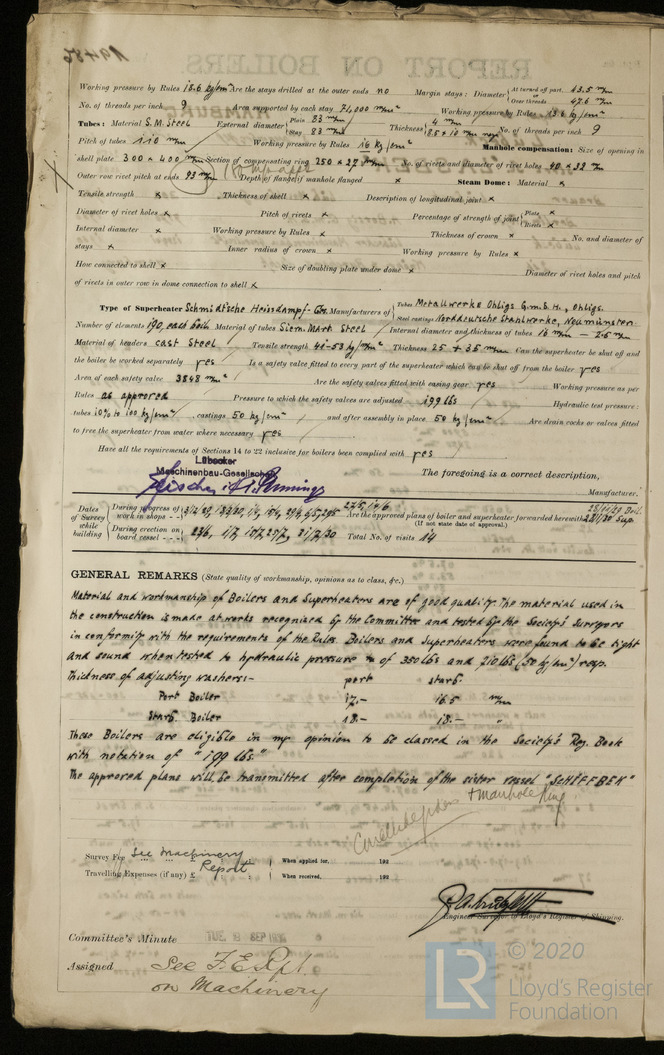 19486
REPORT ON BOILERS
Working pressure by Rules 13.6 kg/cm² Are the stays drilled at the outer ends no Margin stays: Diameter { At turned off part. 43.5 m/m or Over threads 47.6 m/m
No. of threads per inch 9 Area supported by each stay 71,000 m/m² Working pressure by Rules 13.6 kg/cm²
Tubes: Material S.M. Steel External diameter { Plain 83 m/m Stay 83 m/m Thickness { 4 m/m 8.5 + 10 m/m No. of threads per inch 9
Pitch of tubes 110 m/m Working pressure by Rules 16 kg/cm² Manhole compensation: Size of opening in
shell plate 300 x 400 m/m Section of compensating ring 250 x 27 m/m No. of rivets and diameter of rivet holes 40 x 32 m/m
Outer row rivet pitch at ends 93 m/m Depth of flange if manhole flanged x Steam Dome: Material x
Tensile strength x Thickness of shell x Description of longitudinal joint x
Diameter of rivet holes x Pitch of rivets x Percentage of strength of joint { Plate x Rivets x
Internal diameter x Working pressure by Rules x Thickness of crown x No. and diameter of
stays x Inner radius of crown x Working pressure by Rules x
How connected to shell x Size of doubling plate under dome x Diameter of rivet holes and pitch
of rivets in outer row in dome connection to shell x
Type of Superheater Schmidt'sche Heissdampf-Ges. Manufacturers of { Tubes Metallwerke Ohligs G.m.b.H., Ohligs. Steel castings Norddeutsche Stahlwerke, Neumünster
Number of elements 190, each boil. Material of tubes Siem. Mart. Steel Internal diameter and thickness of tubes 16 m/m – 2.5 m/m
Material of headers cast Steel Tensile strength 40-53 kg/m/m² Thickness 25 + 35 m/m Can the superheater be shut off and
the boiler be worked separately yes Is a safety valve fitted to every part of the superheater which can be shut off from the boiler yes
Area of each safety valve 3848 m/m² Are the safety valves fitted with easing gear yes Working pressure as per
Rules as approved Pressure to which the safety valves are adjusted 199 lbs Hydraulic test pressure:
tubes 10% to 100 kg/cm², castings 50 kg/cm² and after assembly in place 50 kg/cm² Are drain cocks or valves fitted
to free the superheater from water where necessary yes
Have all the requirements of Sections 14 to 22 inclusive for boilers been complied with yes
Lübecker
Maschinenbau-Gesellschaft
The foregoing is a correct description,
Manufacturer.
Dates of Survey while building { During progress of work in shops - - Are the approved plans of boiler and superheater forwarded herewith
(If not state date of approval.)
During erection on board vessel - - - Total No. of visits 14
GENERAL REMARKS (State quality of workmanship, opinions as to class, &c.)
Material and workmanship of Boilers and Superheaters are of good quality. The material used in
the construction is made at works recognised by the Committee and tested by the Society's Surveyors
in conformity with the requirements of the Rules. Boilers and Superheaters were found to be tight
and sound when tested to hydraulic pressure of 350 lbs and 710 lbs (50 kg/cm²) resp.
Thickness of adjusting washers:- port starb.
Port Boiler 17.- 16.5 m/m
Starb. Boiler 18.- 18.- "
These Boilers are eligible in my opinion to be classed in the Society's Reg. Book
with notation of "199 lbs."
The approved plans will be transmitted after completion of the sister vessel "SCHIFFBEK"
+ Manhole Ring
Survey Fee See Machinery When applied for, 192
Travelling Expenses (if any) £ Report When received, 192
Engineer Surveyor to Lloyd's Register of Shipping.
Committee's Minute
Assigned See F.E. Rpt.
on Machinery
LR © 2020
Lloyd's Register
Foundation